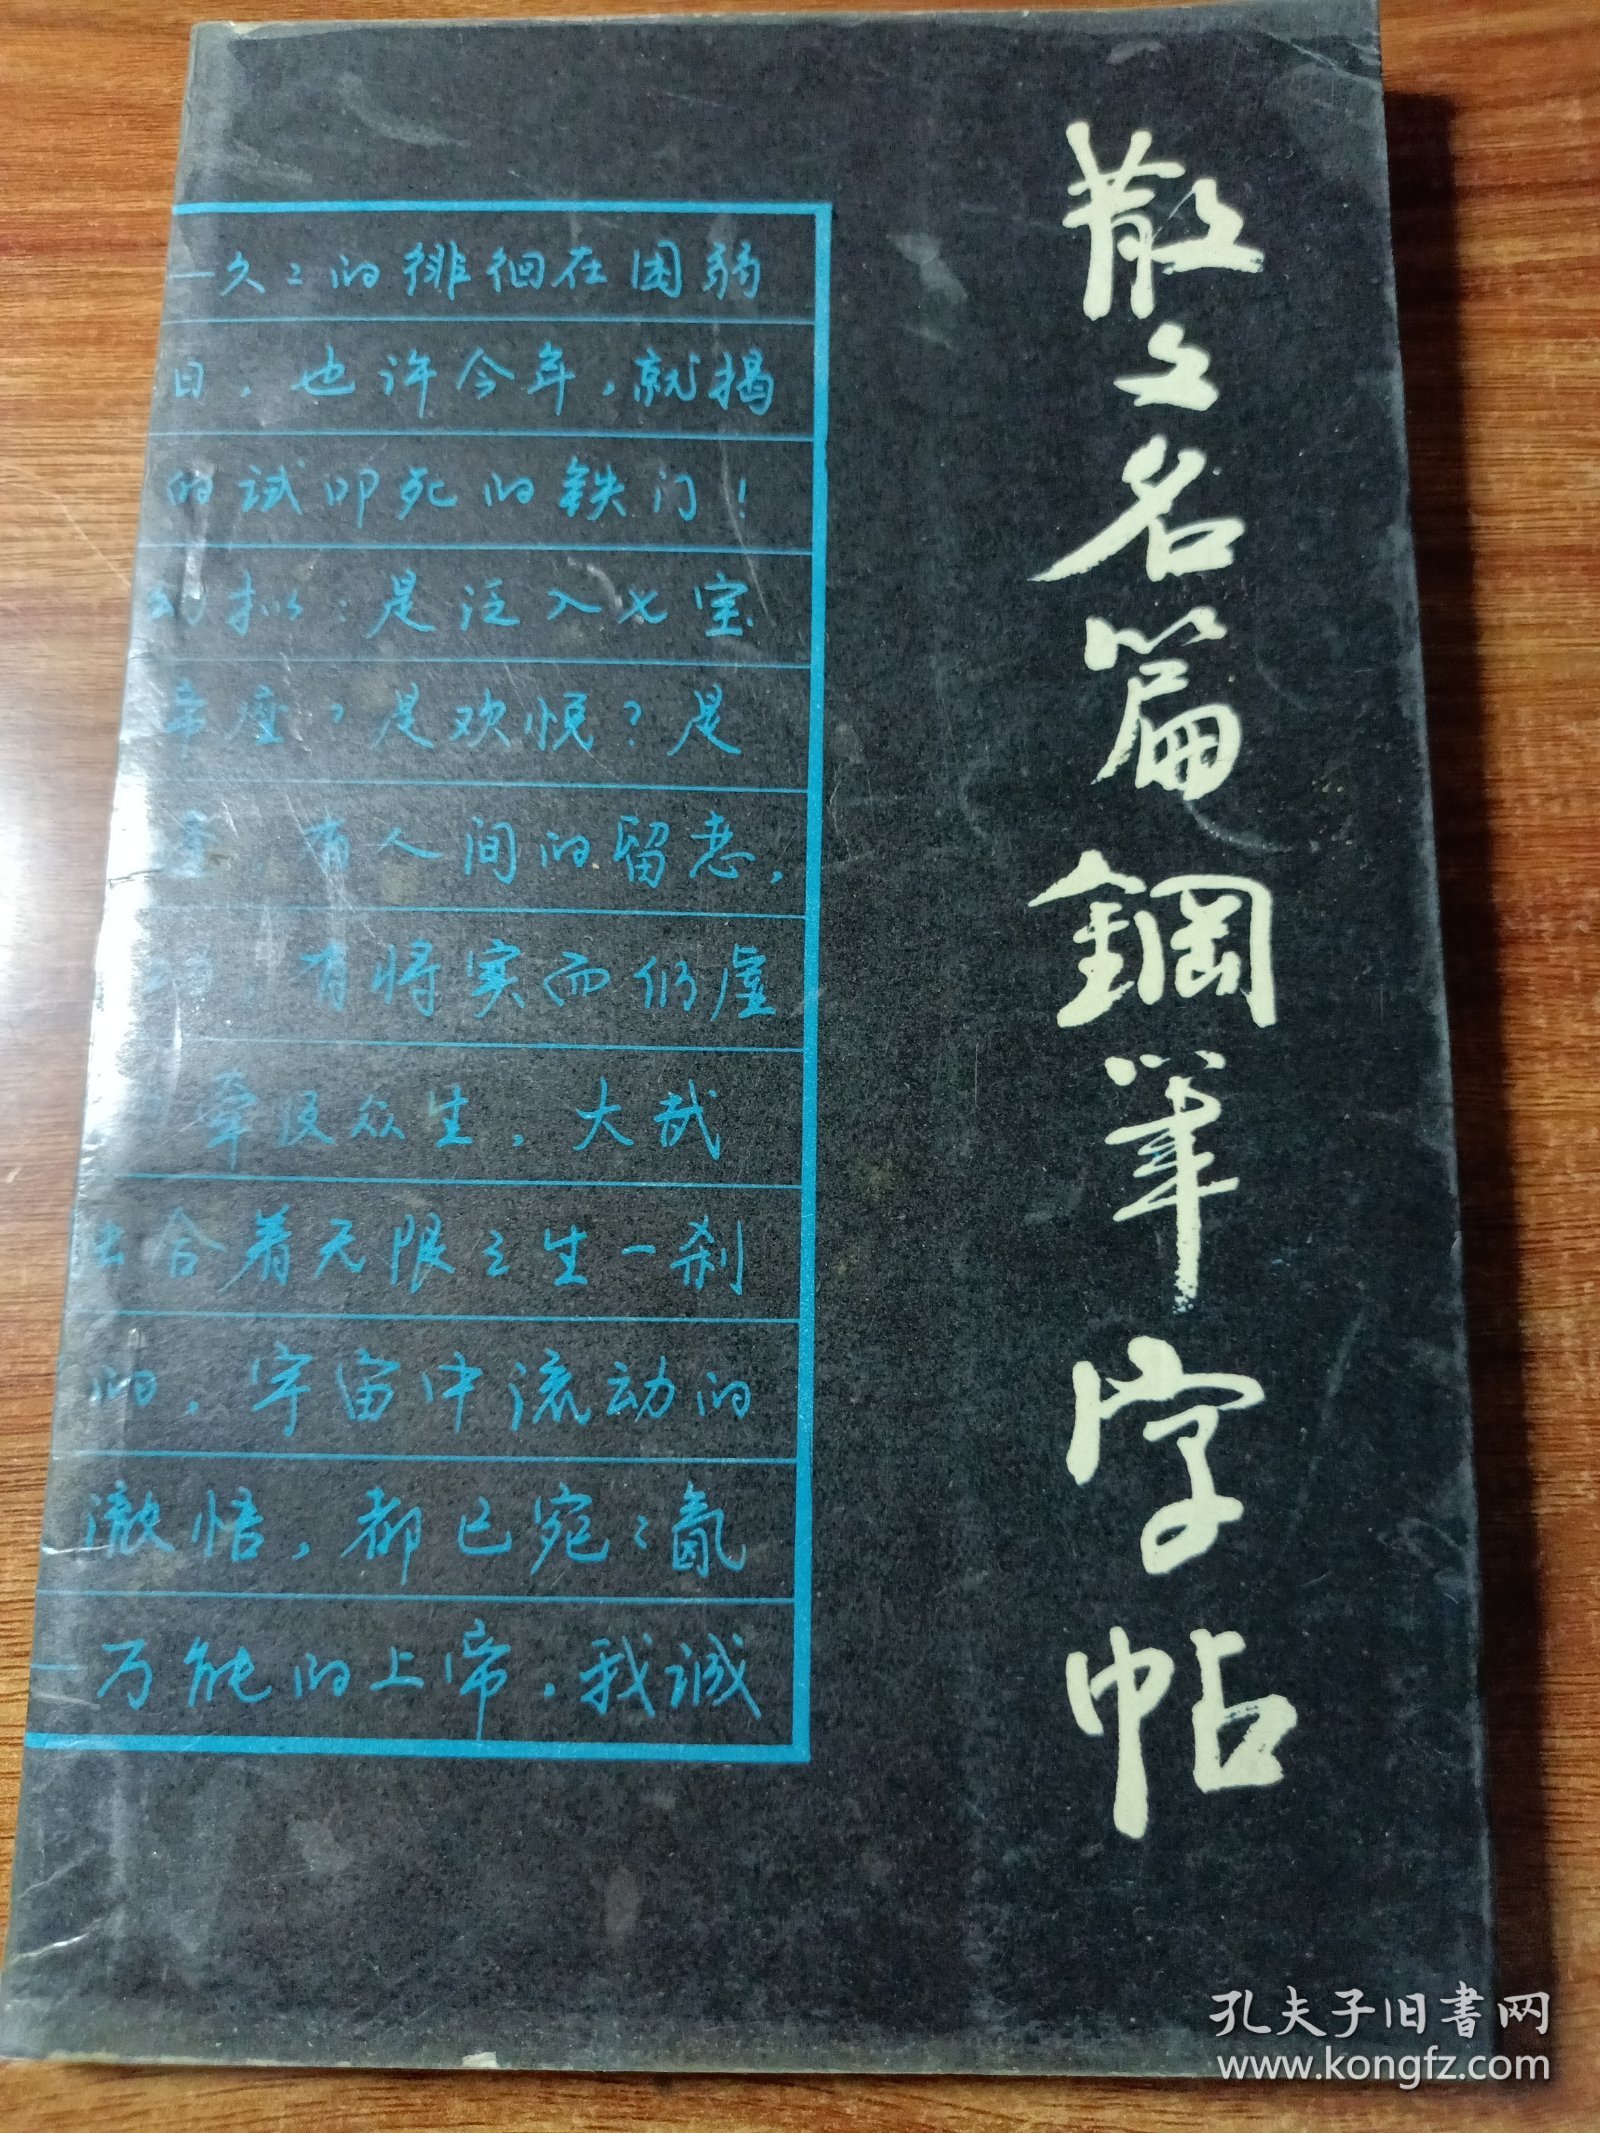 散文名篇鋼筆字帖
一久々的徘徊在困弱
日，也许今年，就揭
的试叩死的铁门！
拟：是泛入七宝
座？是欢悦？是
，有人间的留恋，
，有将实而仍虚
牵及众生，大哉
合着无限之生一刹
的，宇宙中流动的
澈悟，都已宛々氤
一万能的上帝，我诚
孔夫子旧書网
www.kongfz.com